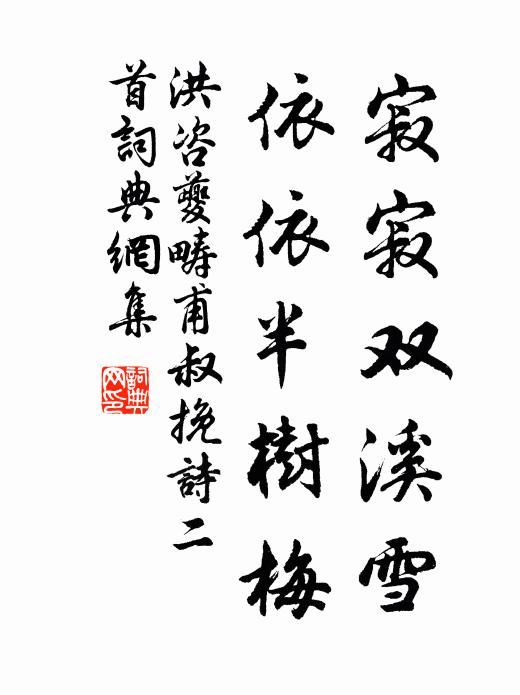 寂寂双溪雪
依依半樹梅
洪咨夔疇甫叔挽詩二
首詞典網集
詞典
网印